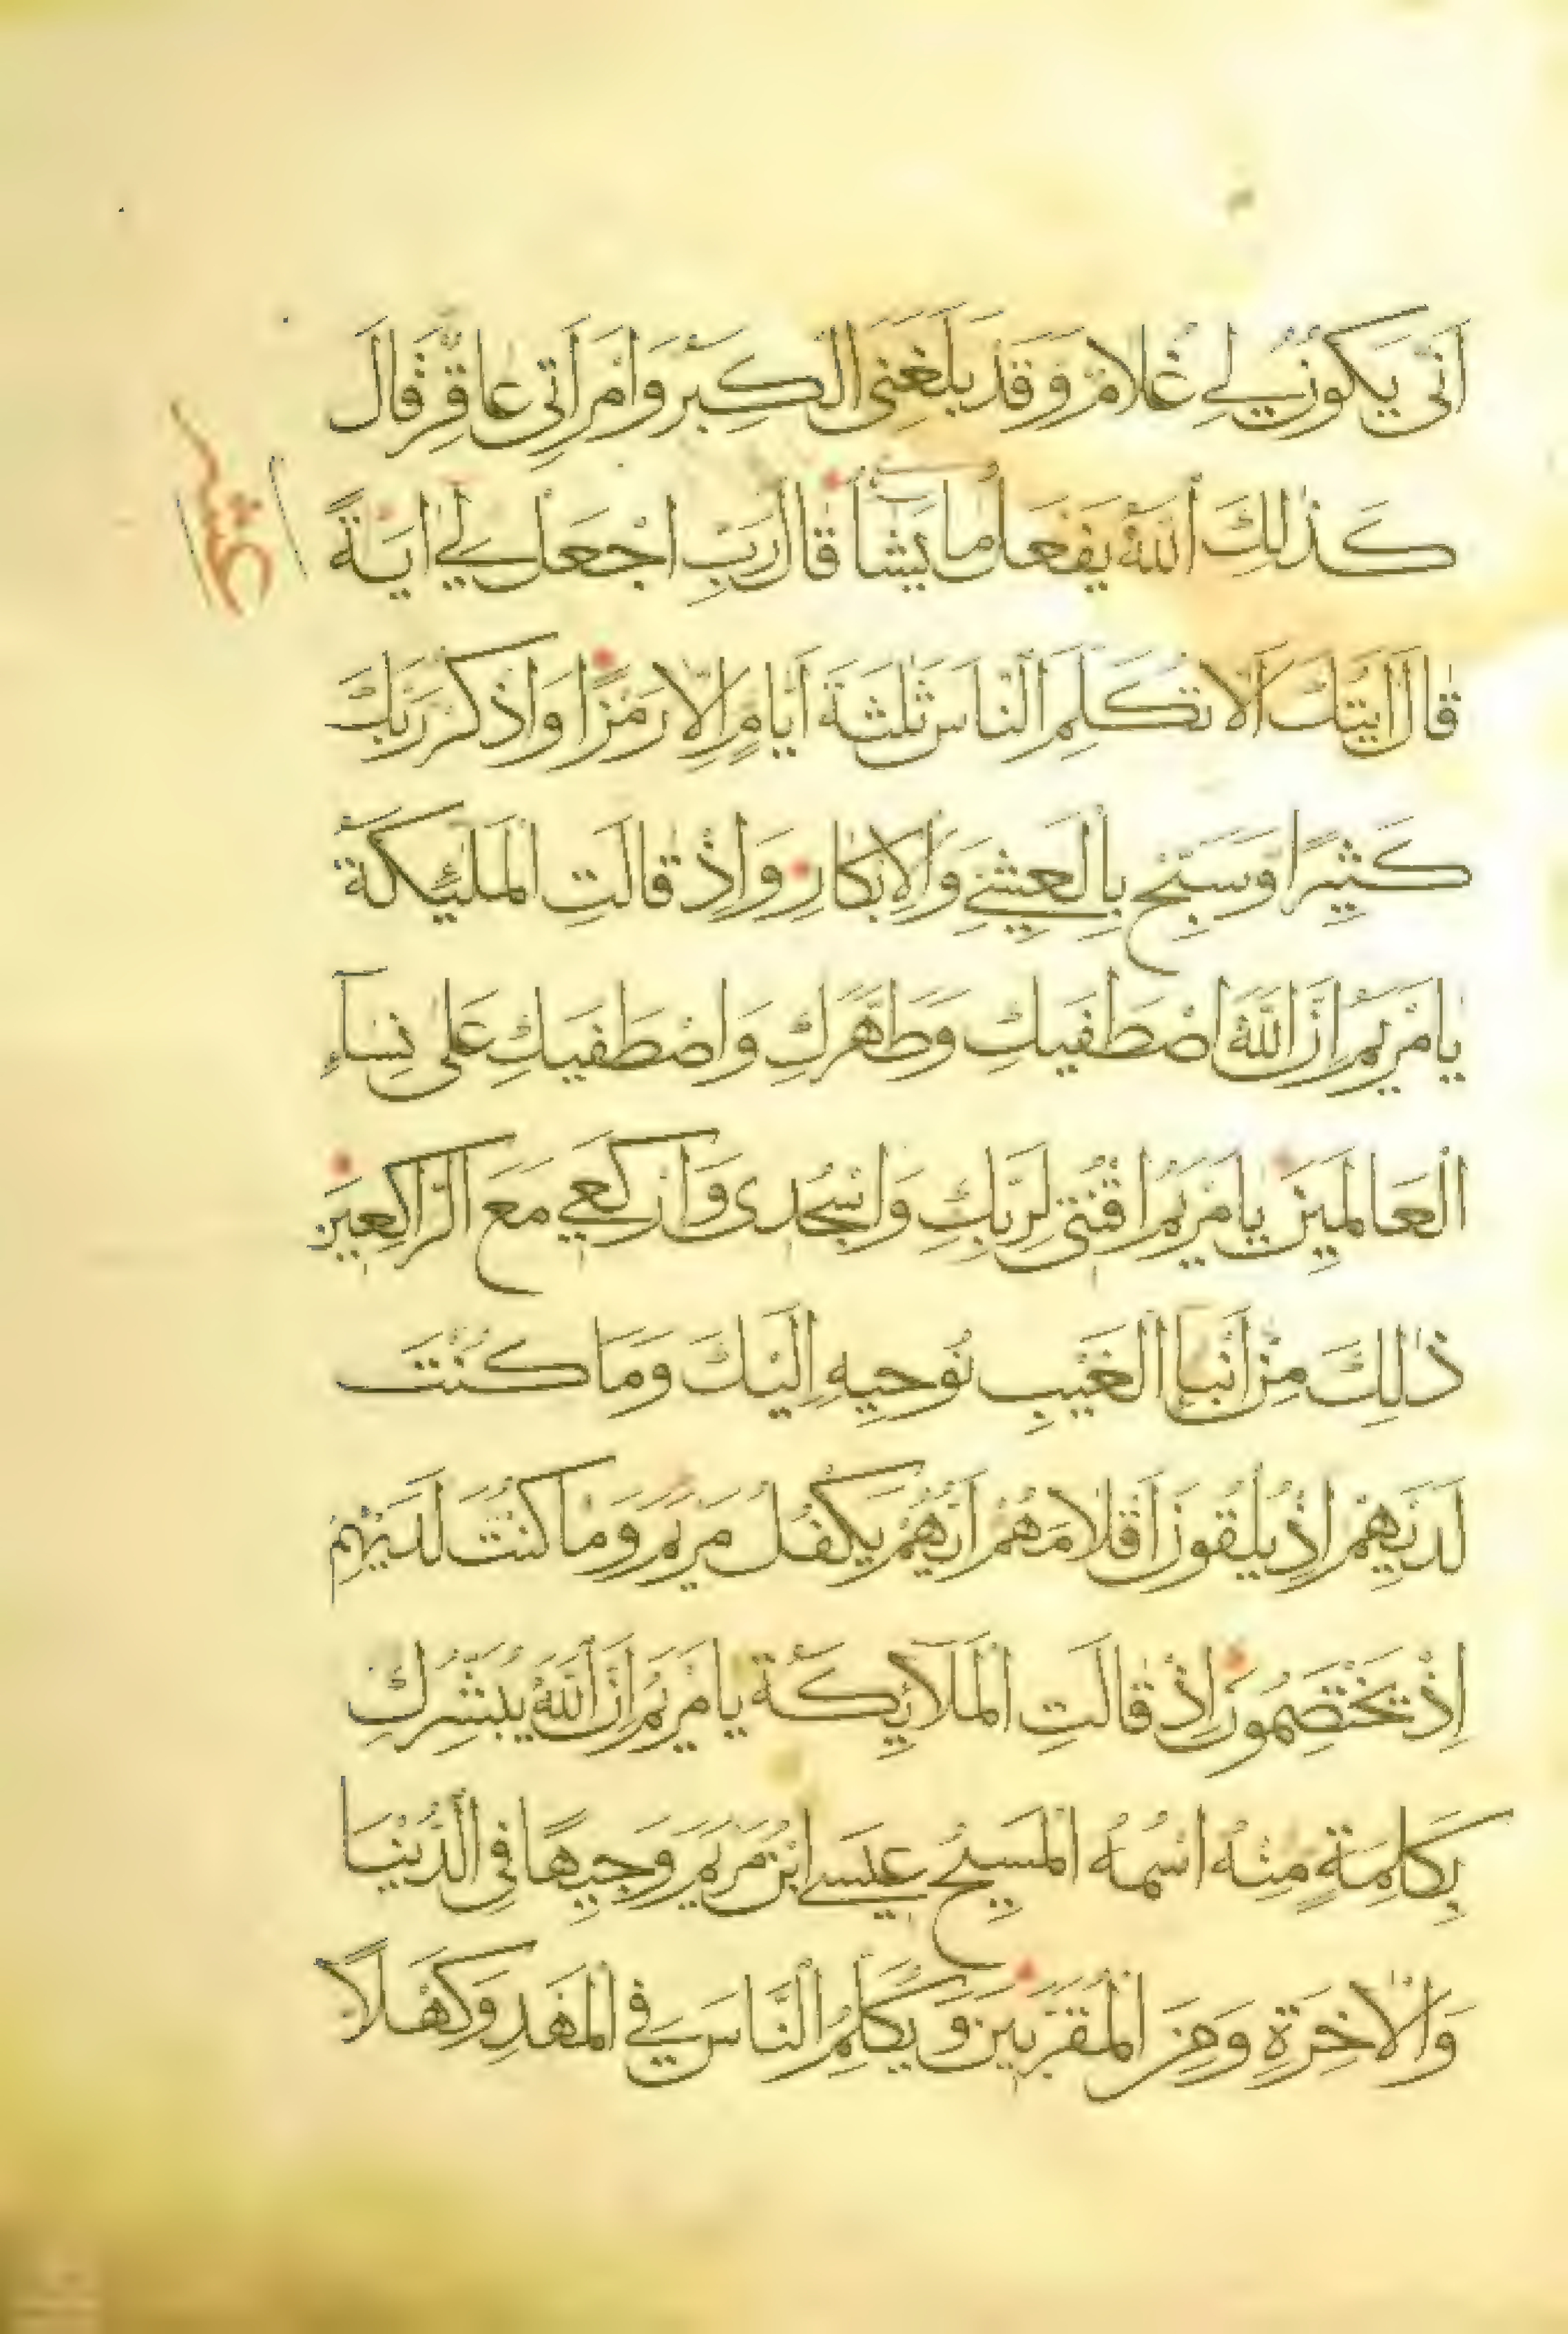 اَنّٰى يَكُونُ لِي غُلَامٌ وَقَدْ بَلَغَنِيَ الْكِبَرُ وَامْرَاَتِي عَاقِرٌ قَالَ
كَذٰلِكَ اللّٰهُ يَفْعَلُ مَا يَشَآءُ قَالَ رَبِّ اجْعَلْ لِي اٰيَةً
عشر
قَالَ اٰيَتُكَ اَلَّا تُكَلِّمَ النَّاسَ ثَلٰثَةَ اَيَّامٍ اِلَّا رَمْزًا وَاذْكُرْ رَبَّكَ
كَثِيرًا وَسَبِّحْ بِالْعَشِيِّ وَالْاِبْكَارِ وَاِذْ قَالَتِ الْمَلٰٓئِكَةُ
يَامَرْيَمُ اِنَّ اللّٰهَ اصْطَفٰيكِ وَطَهَّرَكِ وَاصْطَفٰيكِ عَلٰى نِسَآءِ
الْعَالَمِينَ يَامَرْيَمُ اقْنُتِي لِرَبِّكِ وَاسْجُدِى وَارْكَعِي مَعَ الرَّاكِعِينَ
ذٰلِكَ مِنْ اَنْبَاءِ الْغَيْبِ نُوحِيهِ اِلَيْكَ وَمَا كُنْتَ
لَدَيْهِمْ اِذْ يُلْقُونَ اَقْلَامَهُمْ اَيُّهُمْ يَكْفُلُ مَرْيَمَ وَمَا كُنْتَ لَدَيْهِمْ
اِذْ يَخْتَصِمُونَ اِذْ قَالَتِ الْمَلَآئِكَةُ يَامَرْيَمُ اِنَّ اللّٰهَ يُبَشِّرُكِ
بِكَلِمَةٍ مِنْهُ اسْمُهُ الْمَسِيحُ عِيسَى ابْنُ مَرْيَمَ وَجِيهًا فِي الدُّنْيَا
وَالْاٰخِرَةِ وَمِنَ الْمُقَرَّبِينَ وَيُكَلِّمُ النَّاسَ فِي الْمَهْدِ وَكَهْلًا